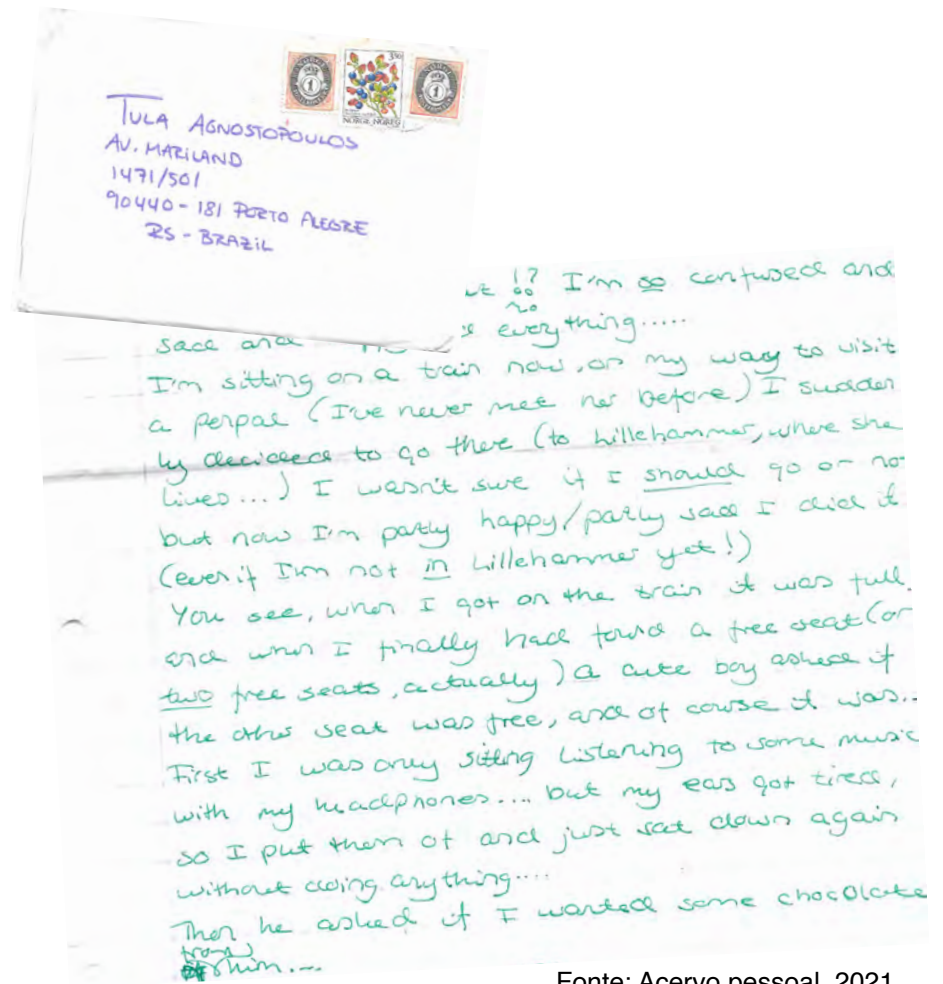 TULA AGNOSTOPOULOS
AV. MARILAND
1471/501
90440-181 PORTO ALEGRE
RS - BRAZIL
NORGE NOREG
!? I'm so confused and
sad and everything.....
I'm sitting on a train now, on my way to visit
a penpal (I've never met her before) I sudden
ly decided to go there (to Lillehammer, where she
lives...) I wasn't sure if I should go or no
but now I'm partly happy/partly sad I did it
(even if I'm not in Lillehammer yet!)
You see, when I got on the train it was full.
and when I finally had found a free seat (or
two free seats, actually) a cute boy asked if
the other seat was free, and of course it was..
First I was only sitting listening to some music
with my headphones.... but my ears got tired,
so I put them of and just sat down again
without doing anything....
Then he asked if I wanted some chocolate
from
him....
Fonte: Acervo pessoal, 2021